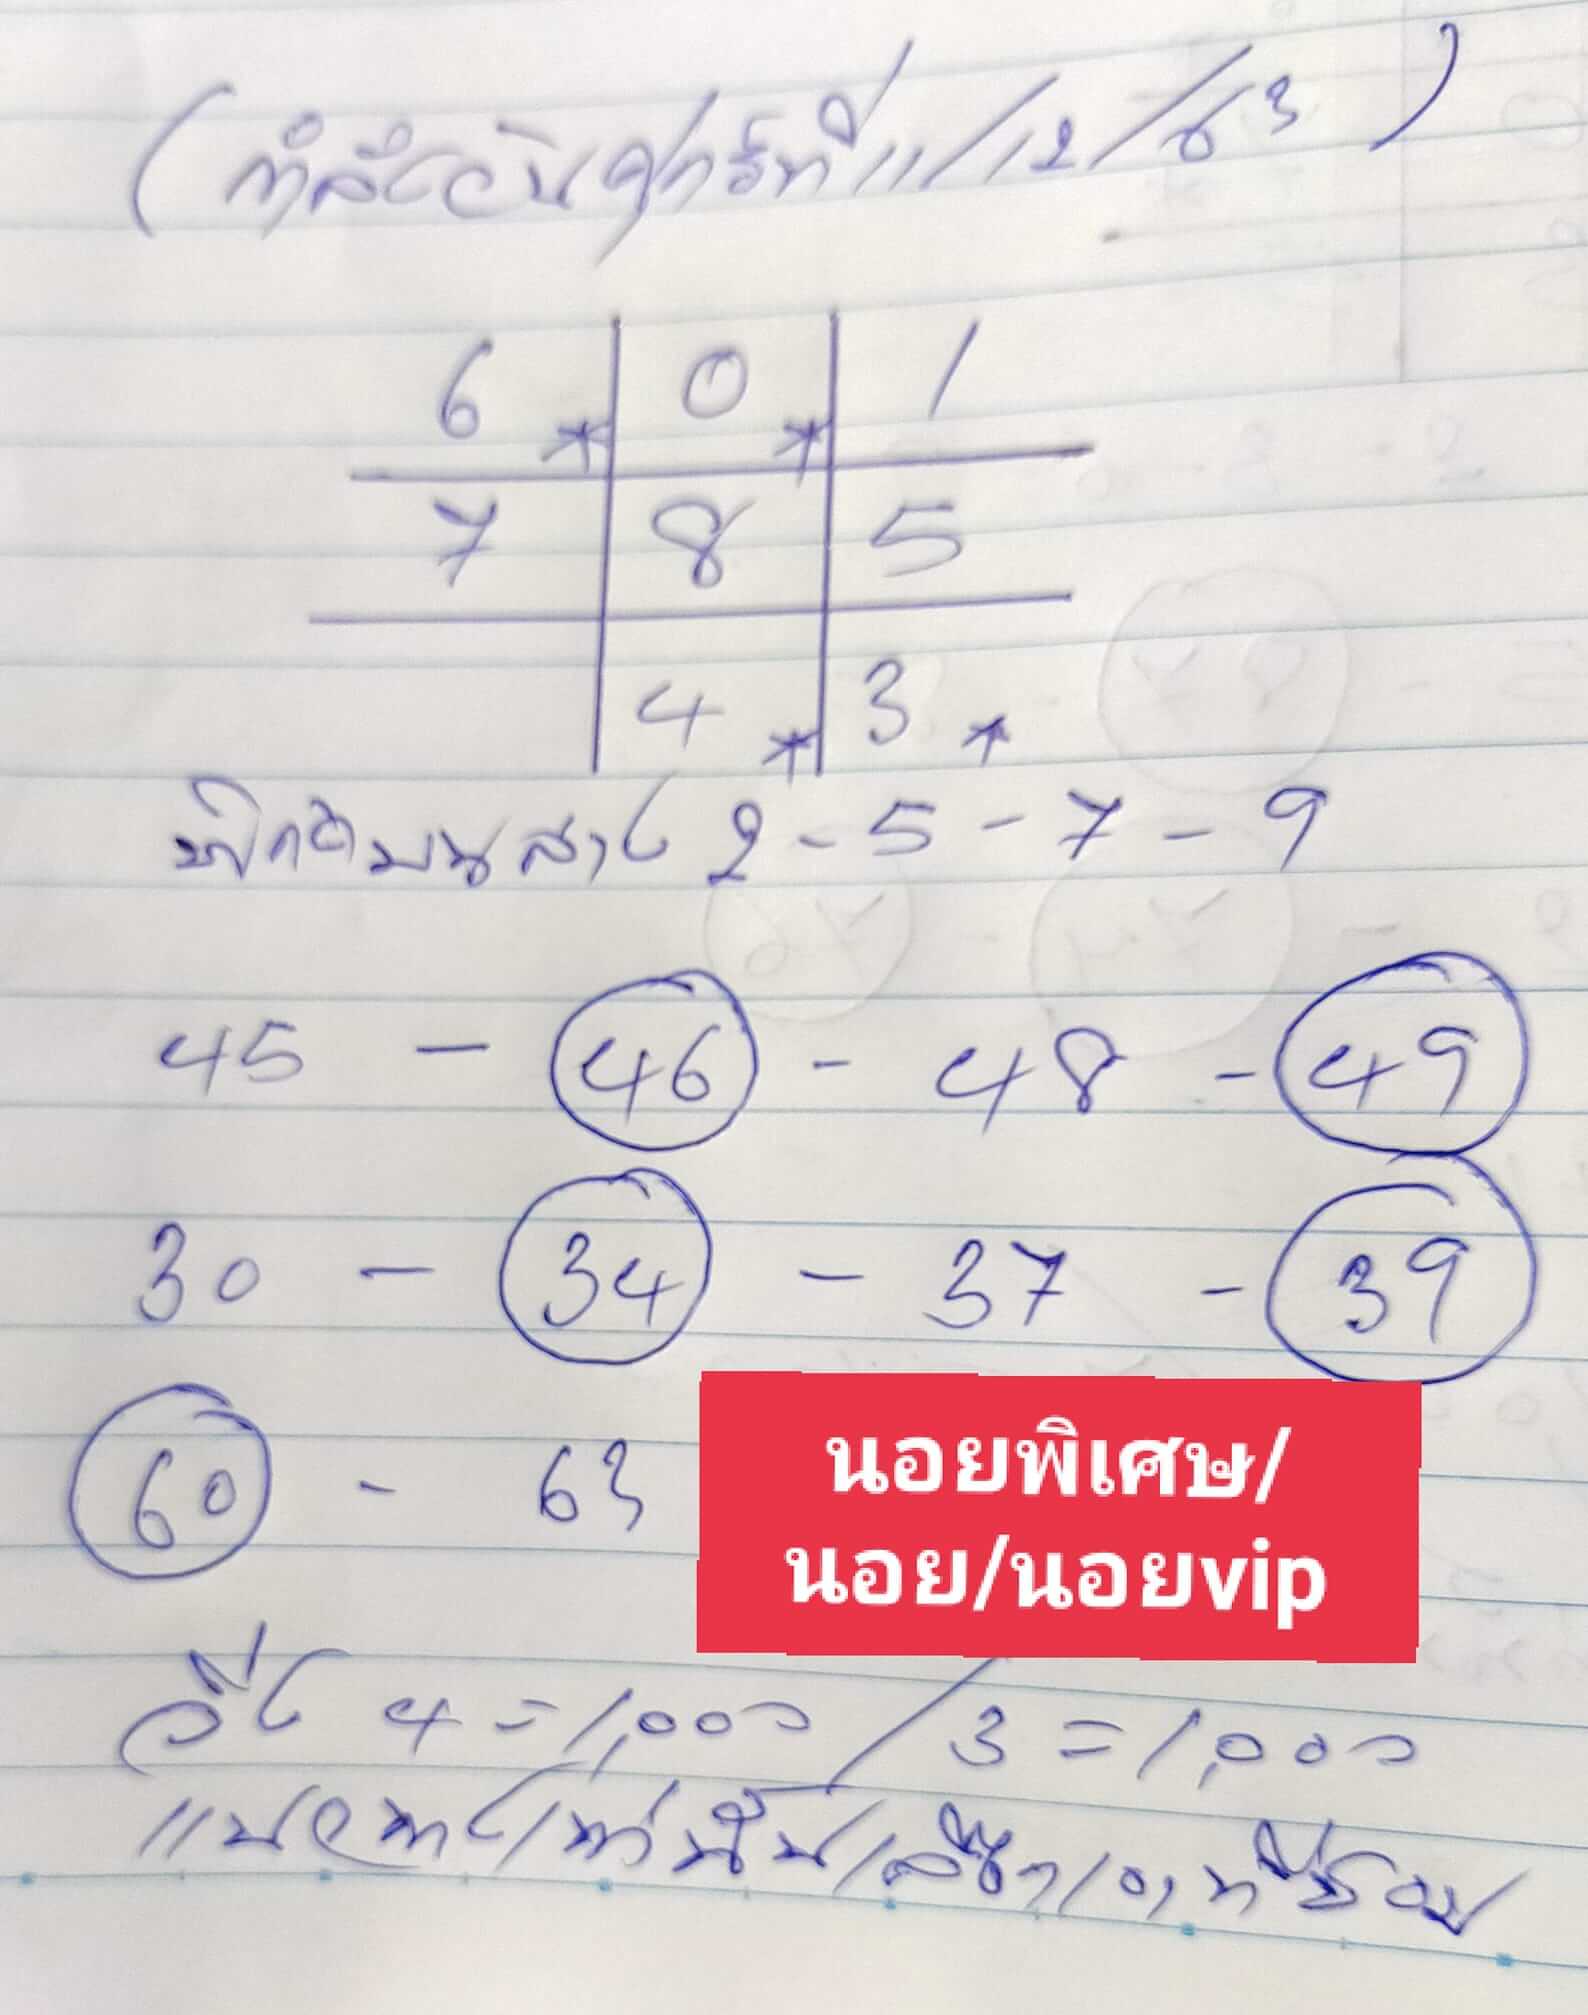 (กำลังวันศุกร์ที่ 11/12/63)
6 * 0 * 1
7 8 5
4 * 3 *
พิกัดบนล่าง 2 - 5 - 7 - 9
45 - 46 - 48 - 49
30 - 34 - 37 - 39
60 - 63
นอยพิเศษ/
นอย/นอยvip
วิ่ง 4 = 1,000 / 3 = 1,000
แนวทางเท่านั้น